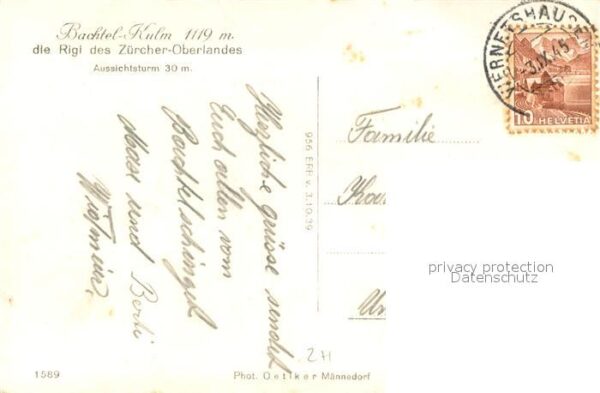 Bachtel-Kulm 1119 m.
die Rigi des Zürcher-Oberlandes
Aussichtsturm 30 m.
Herzliche Grüsse sendet
Euch allen vom
Bachtelschingel
und Berti
956 EFF v. 3.10.39
Familie
HELVETIA
10
privacy protection
Datenschutz
ZH
1589
Phot. Oetiker Männedorf